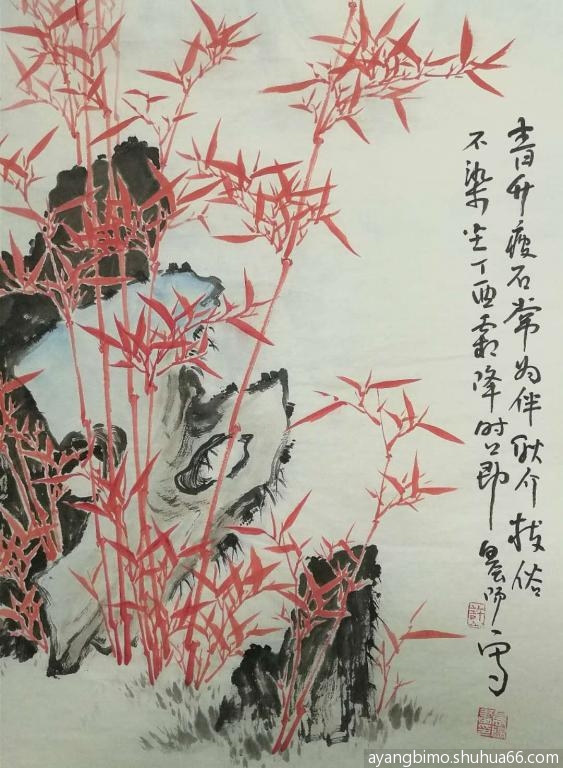 青竹瘦石常为伴耿介拔俗
不染尘丁酉霜降时節师写
ayangbimo.shuhua66.com